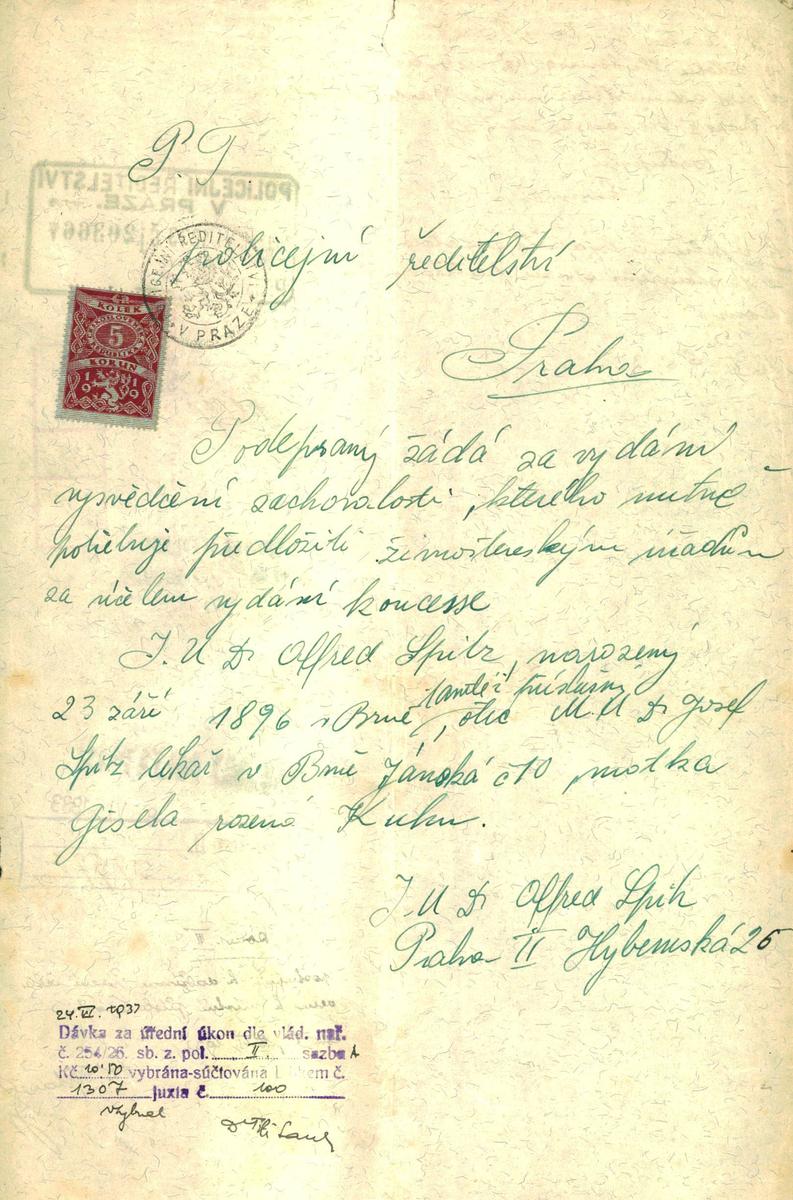 P.T.
POLICEJNÍ ŘEDITELSTVÍ
V PRAZE.
policejní ředitelství
V PRAZE
KOLEK
5
KORUN
1919
Praha
Podepsaný žádá za vydání
vysvědčení zachovalosti, kterého nutně
potřebuje předložiti živnostenským úřadům
za účelem vydání koncesse
J.U Dr Alfred Spitz, narozený
tamtéž příslušný
23 září 1896 v Brně, otec M.U Dr Josef
Spitz lékař v Brně Jánská č 10, matka
Gisela rozená Kuhn.
J.U Dr Alfred Spitz
Praha II Hybernská 26
Dávka za úřední úkon dle vlád. nař.
č. 254/26. sb. z. pol. II. sazba A
Kč 10·50 vybrána-súčtována kolkem č.
1307 juxta č. 100
Vybral